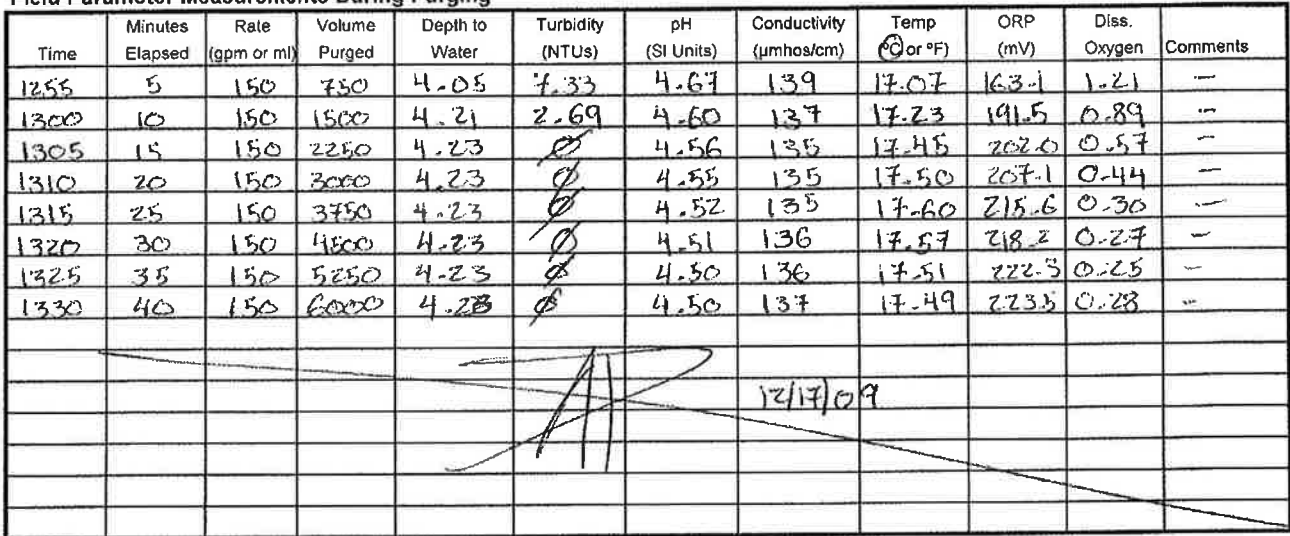 Field Parameter Measurements During Purging
Time | Minutes Elapsed | Rate (gpm or ml) | Volume Purged | Depth to Water | Turbidity (NTUs) | pH (SI Units) | Conductivity (µmhos/cm) | Temp (°C or °F) | ORP (mV) | Diss. Oxygen | Comments
1255 | 5 | 150 | 750 | 4.05 | 7.33 | 4.67 | 139 | 17.07 | 163.1 | 1.21 | —
1300 | 10 | 150 | 1500 | 4.21 | 2.69 | 4.60 | 137 | 17.23 | 191.5 | 0.89 | —
1305 | 15 | 150 | 2250 | 4.23 | Ø | 4.56 | 135 | 17.45 | 202.0 | 0.57 | —
1310 | 20 | 150 | 3000 | 4.23 | Ø | 4.55 | 135 | 17.50 | 207.1 | 0.44 | —
1315 | 25 | 150 | 3750 | 4.23 | Ø | 4.52 | 135 | 17.60 | 215.6 | 0.30 | —
1320 | 30 | 150 | 4500 | 4.23 | Ø | 4.51 | 136 | 17.57 | 218.2 | 0.27 | —
1325 | 35 | 150 | 5250 | 4.23 | Ø | 4.50 | 136 | 17.51 | 222.3 | 0.25 | —
1330 | 40 | 150 | 6000 | 4.23 | Ø | 4.50 | 137 | 17.49 | 223.5 | 0.28 | —
12/17/09